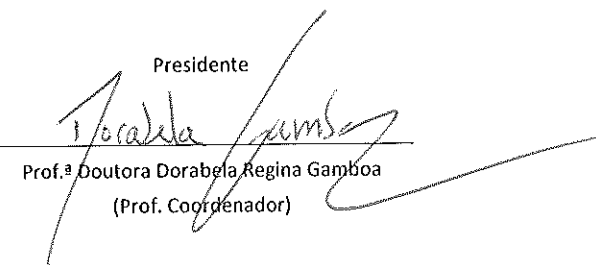 Presidente
Dorabela Gamboa
Prof.ª Doutora Dorabela Regina Gamboa
(Prof. Coordenador)